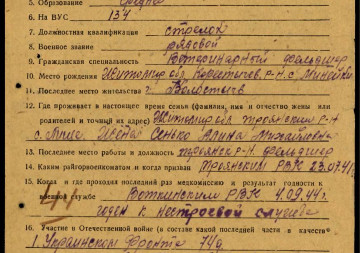 5. Образование Средна
6. На ВУС 134
7. Должностная квалификация стрелок
8. Военное звание рядовой
9. Гражданская специальность Ветеринарный фельдшер
10. Место рождения Житомир обл. Р-Н. с.
11. Последнее место жительства г.
12. Где проживает в настоящее время семья (фамилия, имя и отчество жены или
родителей и точный их адрес) Житомир обл Троянский Р-Н
с. Сенько Михайловна
13. Последнее место работы и должность Троянск Р-Н Фельдшер
14. Каким райгорвоенкоматом и когда призван Троянским РВК 23.07.41
15. Когда и где проходил последний раз медкомиссию и результат годности к
военной службе Воткинским РВК 4.09.44г.
годен к нестроевой службе
16. Участие в Отечественной войне (в составе какой последней части в качестве
1 Украинском Фронте